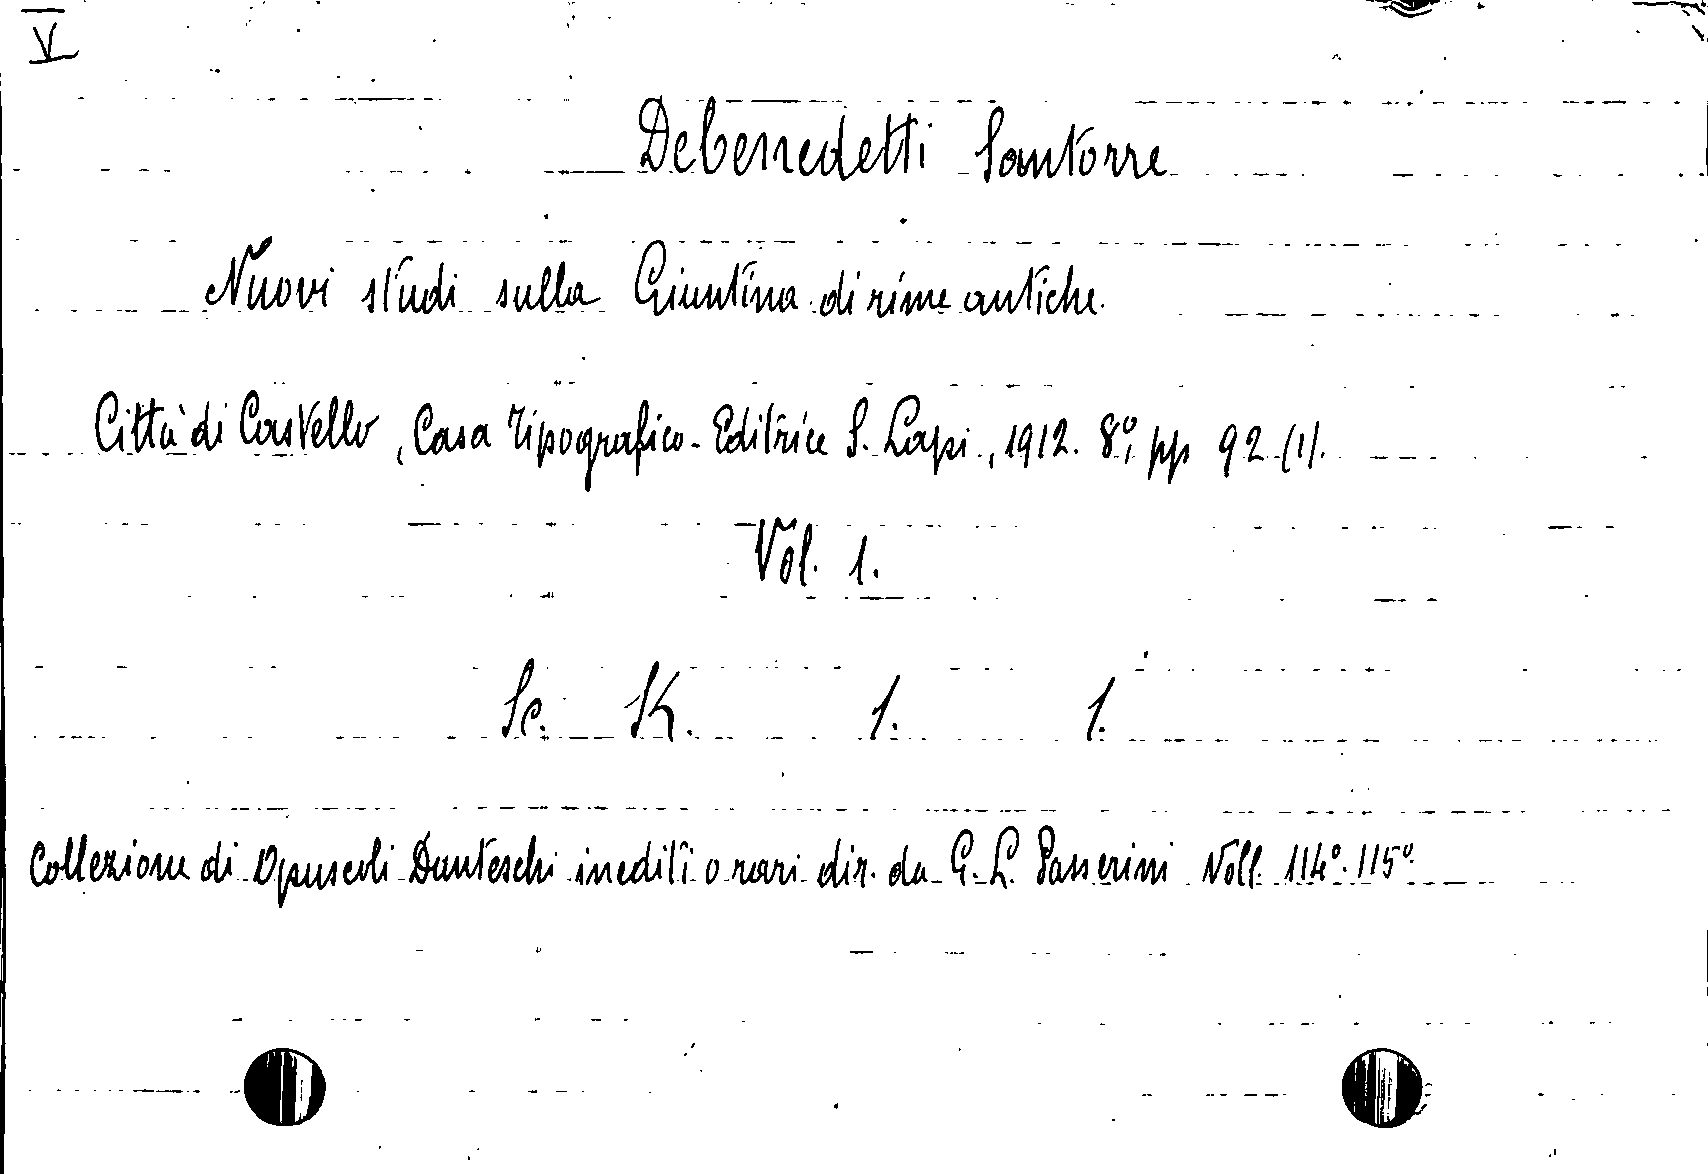 V
Debenedetti Santorre
Nuovi studi sulla Giuntina di rime antiche.
Città di Castello, Casa Tipografico-Editrice S. Lapi, 1912. 8°, pp 92 (1).
Vol. 1.
Sc. K. 1. 1.
Collezione di Opuscoli Danteschi inediti o rari dir. da G. L. Passerini Voll. 114°. 115°.